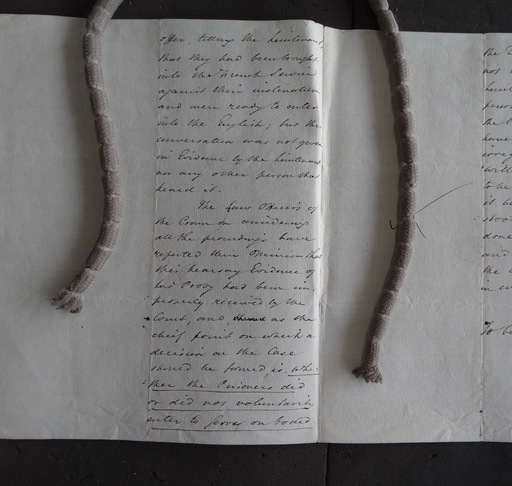 offer, telling the Lieutenant,
that they had been brought
into the French Service
against their inclination
and were ready to enter
into the English; but the
conversation was not given
in Evidence by the Lieutenant
or any other person that
heard it.
The Law Officers of
the Crown on considering
all the proceedings have
reported their Opinion that
this hearsay Evidence of
had been im-
properly received by the
Court, and as the
chief point on which a
decision on the Case
should be formed is whe-
ther the Prisoners did
or did not voluntarily
enter to serve on board
the
not
person
the
have
will
to be
it be
done
and
the
To be